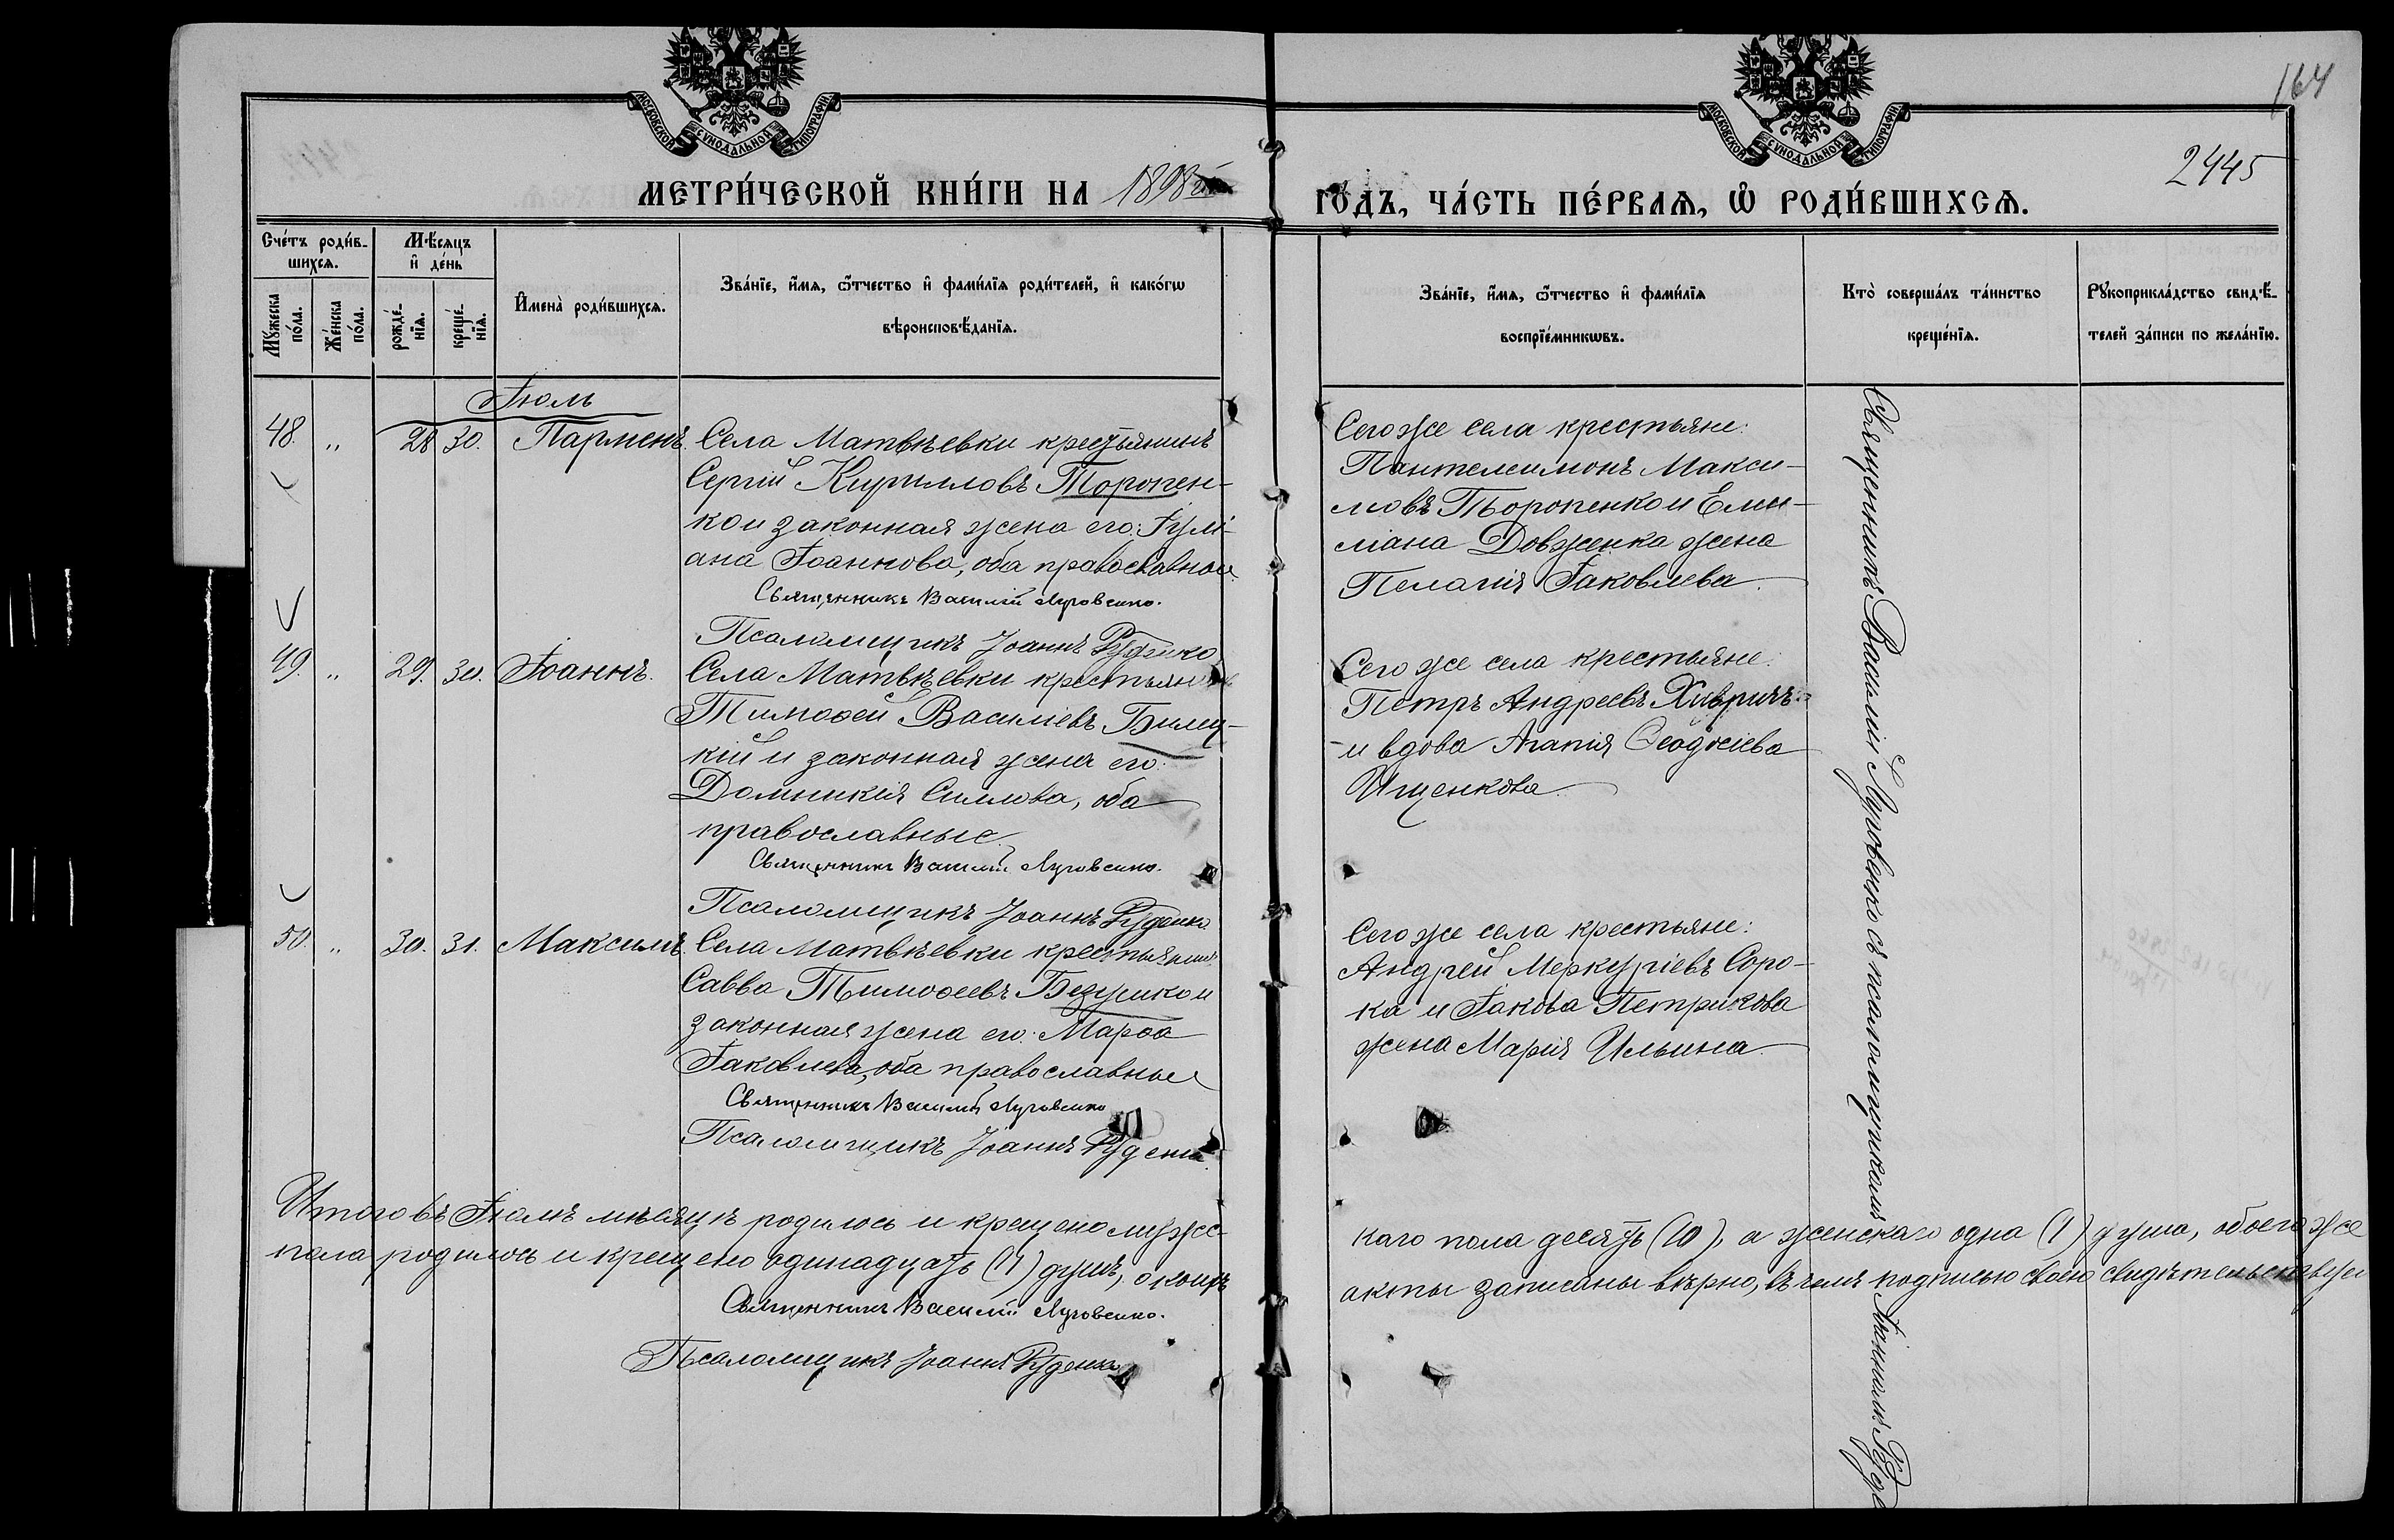 164
МОСКОВСКОЙ СѴНОДАЛЬНОЙ ТИПОГРАФІИ
МОСКОВСКОЙ СѴНОДАЛЬНОЙ ТИПОГРАФІИ
2445
МЕТРИ́ЧЕСКОЙ КНИ́ГИ НА 1898 ГО́ДЪ, ЧА́СТЬ ПЕ́РВАѦ, Ѡ РОДИ́ВШИХСѦ.
Сче́тъ роди́в-
шихсѧ.
Мꙋ́жеска по́ла.
Же́нска по́ла.
Мѣ́сѧцъ
и҆ де́нь
рожде́-
нїѧ.
креще́-
нїѧ.
И҆мена̀ роди́вшихсѧ.
Зва́нїе, и҆́мѧ, ѻ҆́тчество и҆ фами́лїѧ роди́телей, и҆ како́гѡ
вѣроисповѣ́данїѧ.
Зва́нїе, и҆́мѧ, ѻ҆́тчество и҆ фами́лїѧ
воспрїе́мникѡвъ.
Кто̀ соверша́лъ та́инство
креще́нїѧ.
Рꙋкоприкла́дство свидѣ́-
телей за́писи по жела́нїю.
Іюль
48. „ 28 30. Парменъ. Села Матвѣевки крестьянинъ
Сергій Кирилловъ Торопен-
ко и законная жена его: Іулі-
ана Іоаннова, оба православные
Священникъ Василій Луговенко.
Псаломщикъ Іоаннъ Руденко
Сего же села крестьяне:
Пантелеимонъ Макси-
мовъ Торопенко и Еми-
ліана Довженка жена
Пелагія Іаковлева.
49. „ 29. 30. Іоаннъ. Села Матвѣевки крестьянинъ
Тимоѳей Василіевъ Билец-
кій и законная жена его:
Домникія Силлова, оба
православные.
Священникъ Василій Луговенко.
Псаломщикъ Іоаннъ Руденко
Сего же села крестьяне:
Петръ Андреевъ Хивричъ
и вдова Агапія Ѳеодосіева
Ищенкова.
50. „ 30. 31. Максимъ. Села Матвѣевки крестьянинъ
Савва Тимоѳеевъ Безушко и
законная жена его: Марѳа
Іаковлева, оба православные
Священникъ Василій Луговенко
Псаломщикъ Іоаннъ Руденко
Сего же села крестьяне:
Андрей Меркуріевъ Соро-
ка и Іакова Петрикова
жена Марія Ильина.
Священникъ Василій Луговенко съ псаломщикомъ Іоанномъ Руде
Итого въ Іюлѣ мѣсяцѣ родилось и крещено мужес-
каго пола десять (10), а женскаго одна (1) душа, обоего же
пола родилось и крещено одинадцать (11) душъ, о коихъ
акты записаны вѣрно, въ чемъ подписью своею свидѣтельствуемъ
Священникъ Василій Луговенко.
Псаломщикъ Іоаннъ Руденко